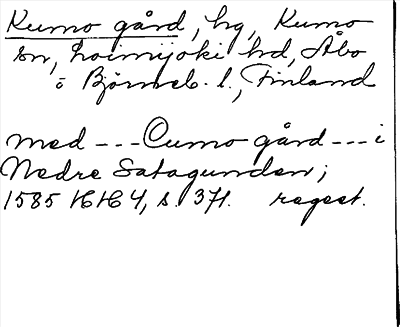 Kumo gård, hg, Kumo
sn, Loimijoki hd, Åbo
o Björneb. l., Finland
med --- Cumo gård --- i
Nedre Satagunden;
1585 HH 4, s. 371. regest.